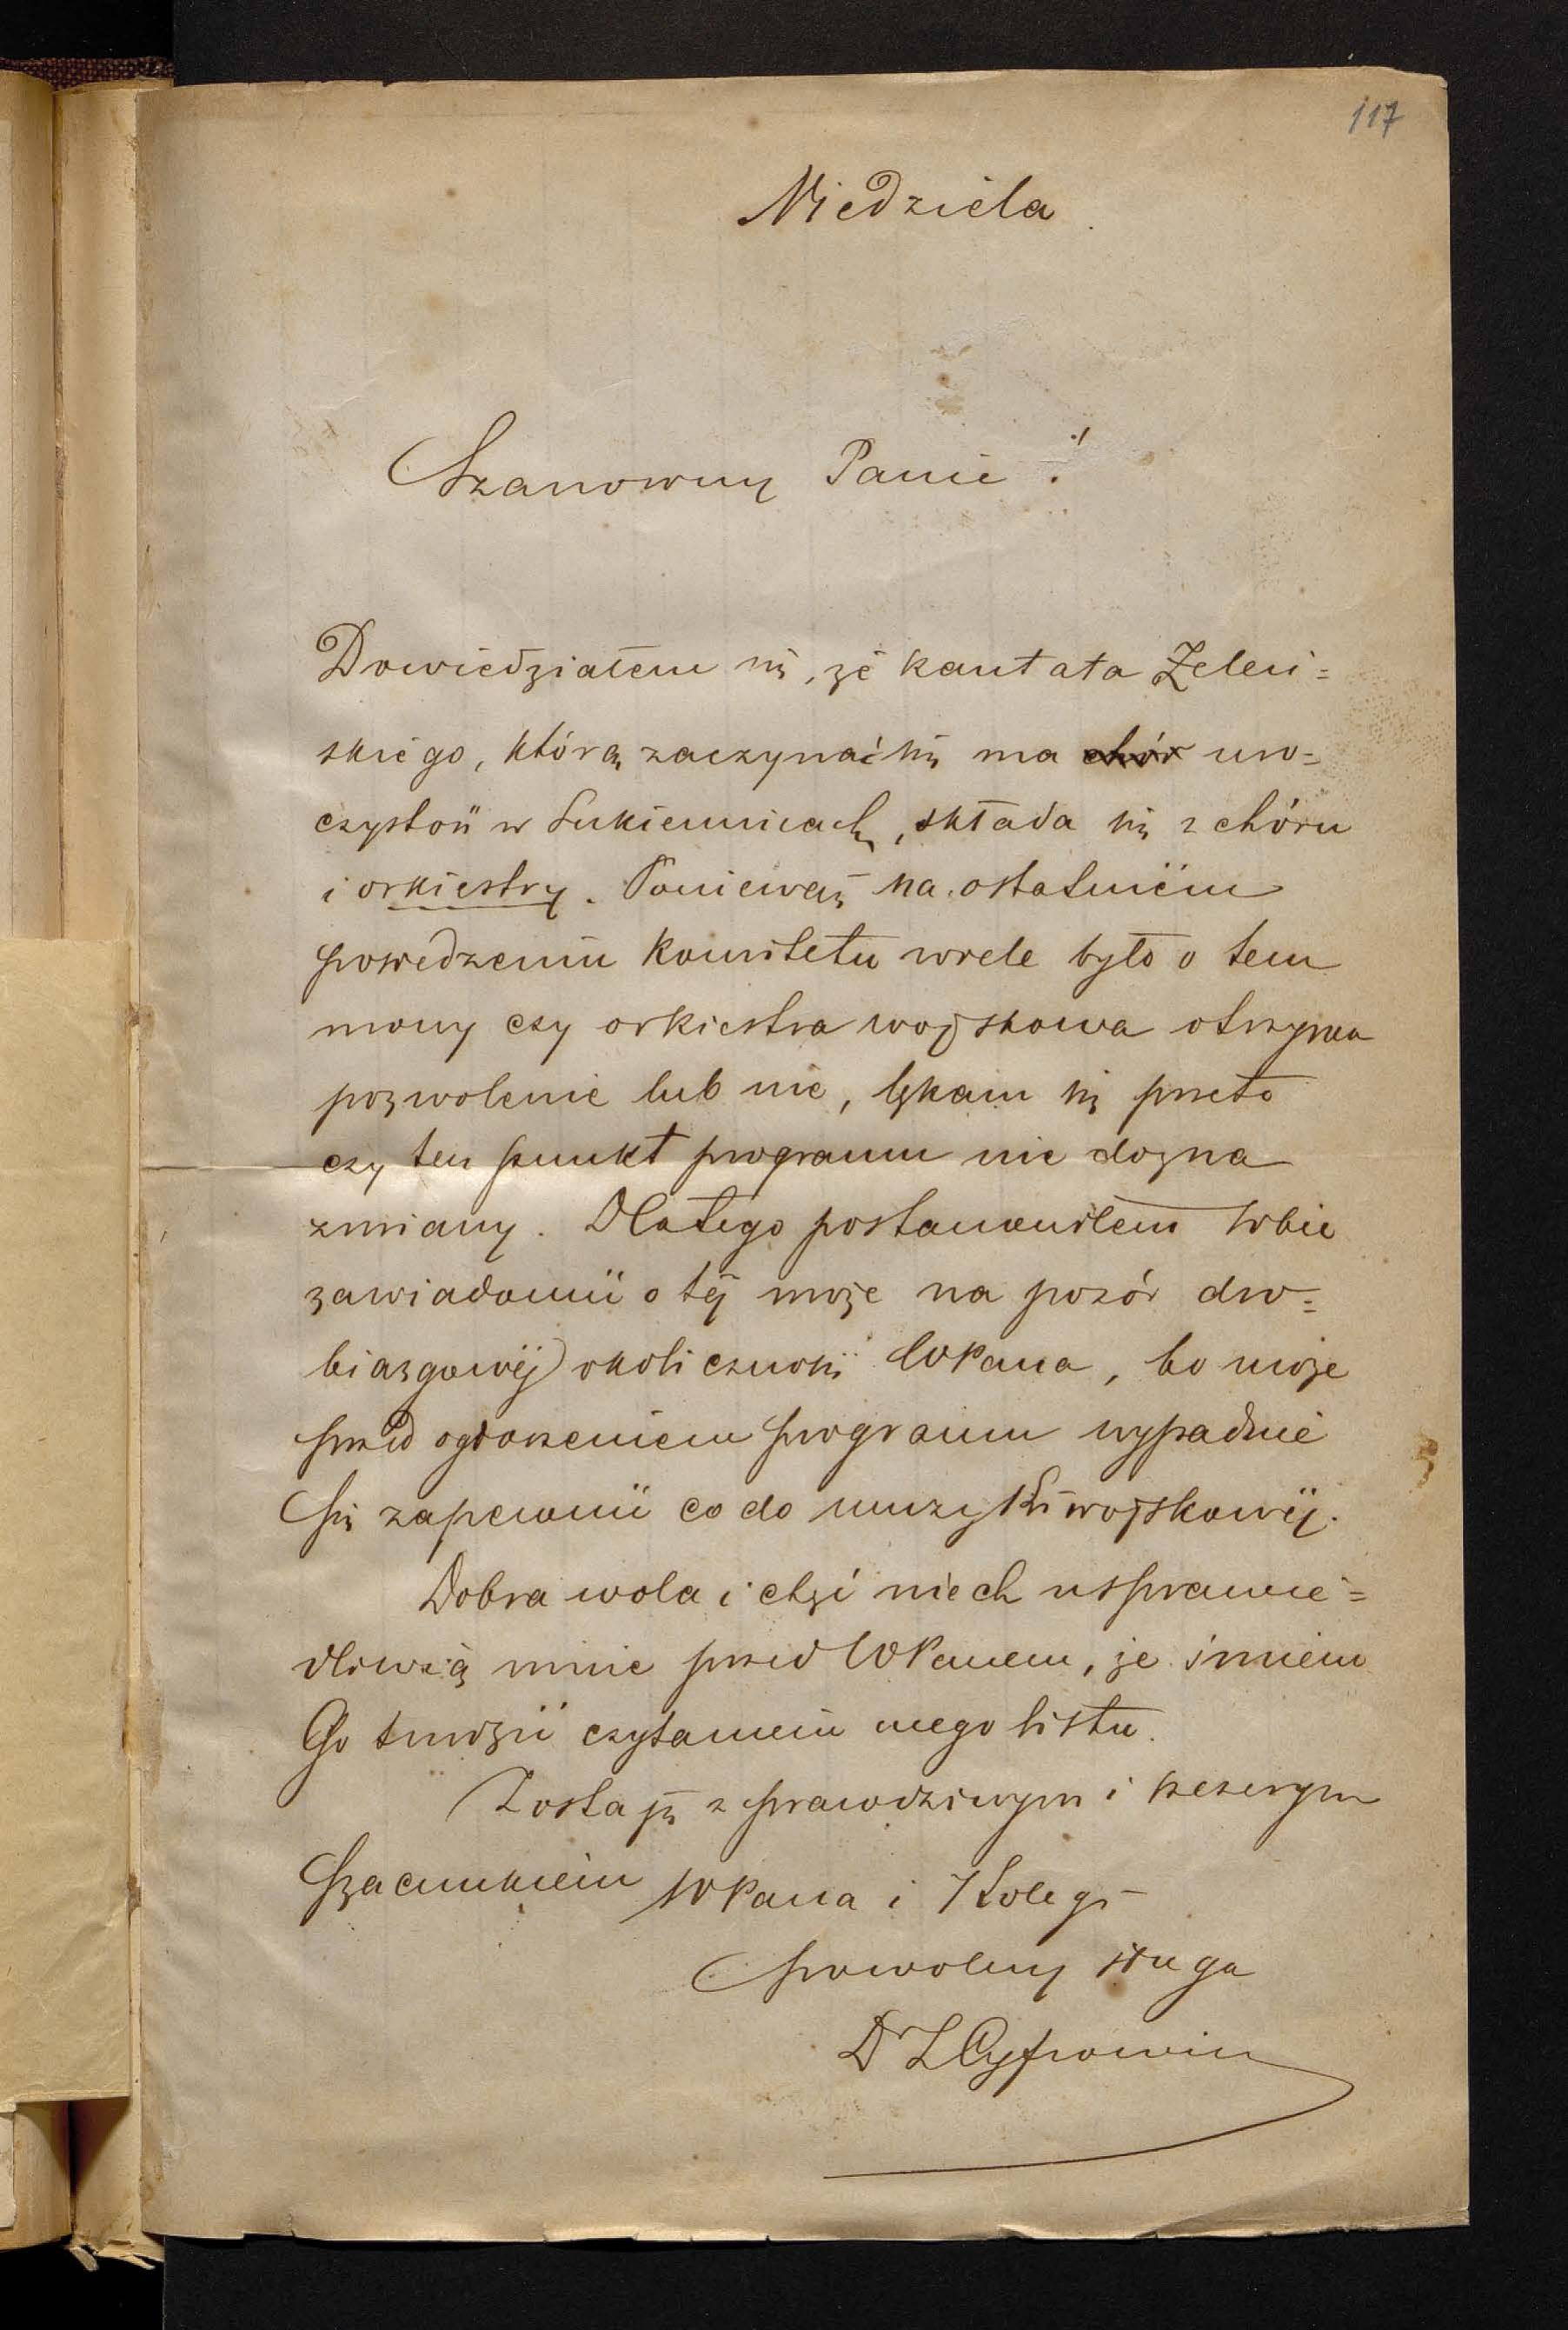 117
Niedziela
Szanowny Panie!
Dowiedziałem się, że kantata Żeleń=
skiego, którą zaczynać się ma chór uro=
czystość w Sukiennicach, składa się z chóru
i orkiestry. Ponieważ na ostatniém
posiedzeniu Komitetu wiele było o tem
mowy czy orkiestra wojskowa otrzyma
pozwolenie lub nie, lękam się przeto
czy ten punkt programu nie dozna
zmiany. Dlatego postanowiłem sobie
zawiadomić o téj może na pozór dro=
biazgowéj okoliczności WPana, bo może
przed ogłoszeniem programu wypadnie
się zapewnić co do muzyki wojskowéj.
Dobra wola i chęć niech usprawie=
dliwią mnie przed WPanem, że śmiem
Go trudzić czytaniem mego listu.
Zostaję z prawdziwym i szczerym
szacunkiem WPana i Kolegi
powolny sługa
Dr L Cyfrowicz